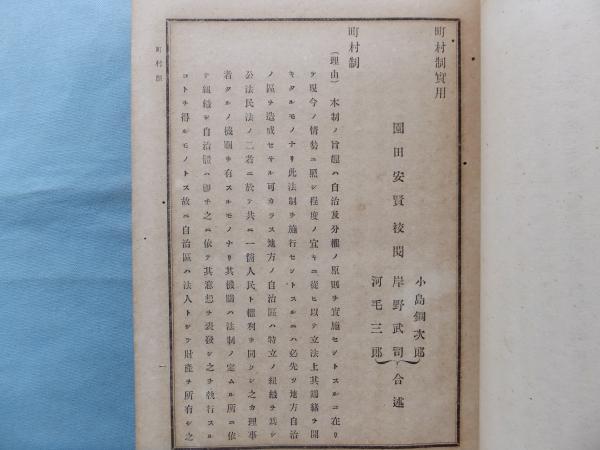 町村制實用
園田安賢校閲
小島鋼次郎
岸野武司
河毛三郎
合述
町村制
(理由)本制ノ旨趣ハ自治及分權ノ原則ヲ實施セントスルニ在リ
テ現今ノ情勢ニ照シ程度ノ宜キニ從ヒ以テ立法上其端緒ヲ開
キタルモノナリ此法制ヲ施行セントスルニハ必先ツ地方自治
ノ區ヲ造成セサル可カラス地方ノ自治區ハ特立ノ組織ヲ爲シ
公法民法ノ二者ニ於テ共ニ一箇人民ト權利ヲ同クシ之カ理事
者タルノ機關ヲ有スルモノナリ其機關ハ法制ノ定ムル所ニ依
テ組織シ自治體ハ即チ之ニ依テ其意想ヲ表發シ之ヲ執行スル
コトヲ得ルモノトス故ニ自治區ハ法人トシテ財產ヲ所有シ之
町村制
一